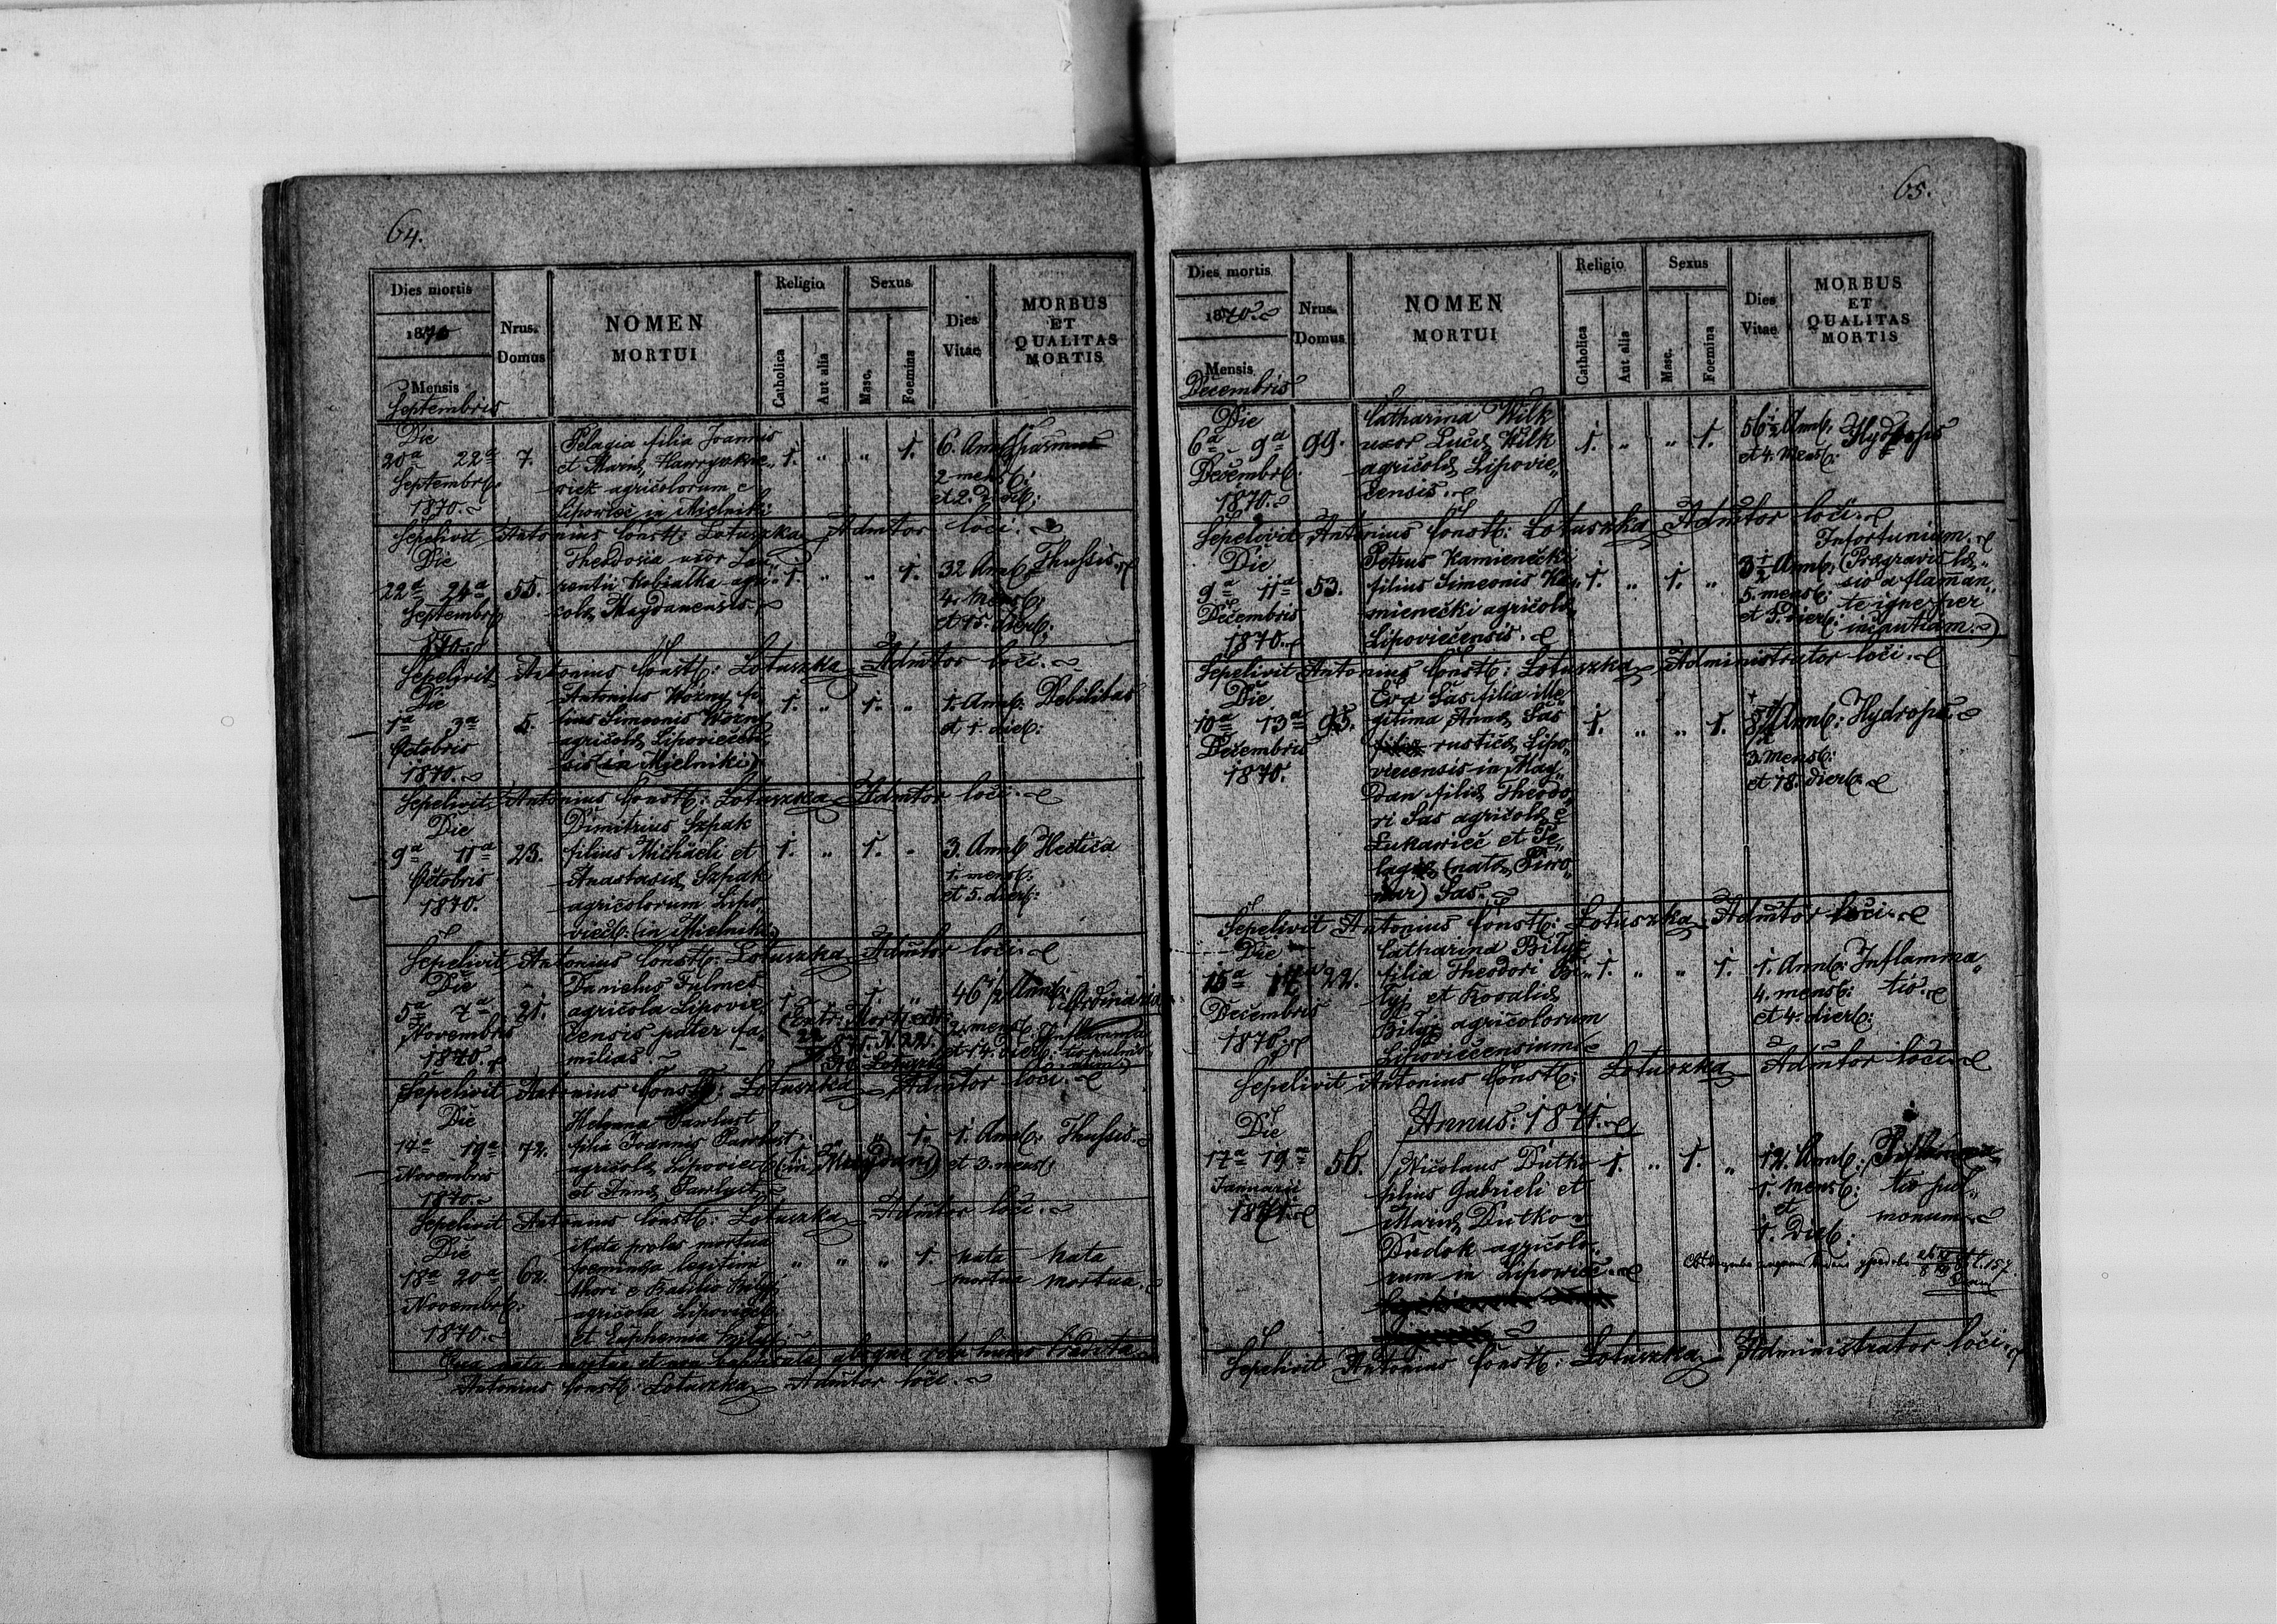 64.
Dies mortis
1870
Mensis
Septembris
Nrus.
Domus
NOMEN
MORTUI
Religio
Catholica
Aut alia
Sexus
Masc.
Foemina
Dies
Vitae
MORBUS
ET
QUALITAS
MORTIS
Die
20a 22a
Septembrb:
1870.
7.
Pelagia filia Joannis
et Mariae
agricolorum e
Lipowiec in Mielniki
1. " " 1.
6. Annb:
2 mensb:
et 2. dieb:
Spasmus
Sepelivit Antonius Constt: Lotuszka Admtor loči.
Die
22a 24a
Septembrb
1870.
55.
Theodosia uxor Lau„
rentii Kobialka agri„
colae Majdanensis.
1. " " 1.
32 Annb:
4. mensb:
et 15. dierb:
Thussis.
Sepelivit Antonius Constt: Lotuszka Admtor loči.
Die
1a 3a
Octobris
1870.
5.
Antonius Wozny fi„
lius Simeonis Wozny
agričolae Lipoviečen„
sis (in Mielniki)
1. " 1. "
1. Annb:
et 1. dieb:
Debilitas
Sepelivit Antonius Constt: Lotuszka Admtor loči.
Die
9a 11a
Očtobris
1870.
23.
Dimitrius Szpak
filius Michaeli et
Anastasiae Szpak
agričolorum Lipo„
viečb: (in Mielniki)
1. " 1. "
3. Annb
1. mensb:
et 5. dierb:
Hectica
Sepelivit Antonius Constt: Lotuszka Admtor loči.
Die
5a 7a
Novembris
1870.
21.
Danielus Fulmes
agričola Lipovie„
čensis pater fa„
milias.
1. " 1. "
46 1/2 Annb:
2. mensb:
et 14. dierb:
Ordinaria
Sepelivit Antonius Constt: Lotuszka Admtor loči.
Die
14a 19a
Novembris
1870.
72.
Pawlust
filia Joannis Pawlust
agričolae Lipovieč (in Majdan)
et Annae
1. " " 1.
1. Annb:
et 3. mensb:
Thussis.
Sepelivit Antonius Constt: Lotuszka Admtor loči.
Die
18a 20a
Novembrb:
1870.
62.
Nata proles mortua
foeminea legitimi
thori e Basilio Bilyj
agričola Lipoviečb:
et Euphemia Bilyj
" " " 1.
nata
mortua
nata
mortua.
Antonius Constt: Lotuszka Admtor loči.
65.
Dies mortis
1870.
Mensis
Decembris
Nrus.
Domus
NOMEN
MORTUI
Religio
Catholica
Aut alia
Sexus
Masc.
Foemina
Dies
Vitae
MORBUS
ET
QUALITAS
MORTIS
Die
6a 9a
Dečembrb.
1870.
99.
Catharina Wilk
uxor Lucae Wilk
agričolae Lipovie„
čensis.
1. " " 1.
56 1/2 Annb.
et 4. mensb:
Hydrops
Sepelivit Antonius Constt: Lotuszka Admtor loči.
Die
9a 11a
Dečembris
1870.
53.
Petrus Kamienečki
filius Simeonis Ka„
mienečki agričolae
Lipoviečensis.
1. " 1. "
3 1/2 Annb.
5. mensb:
et 5. dierb:
Infortunium.
(Praegravis lae„
sio a flamman„
te igne per
inčautiam.)
Sepelivit Antonius Constt: Lotuszka Administrator loči.
Die
10a 13a
Dečembris
1870.
93.
Eva Sas filia ille„
gitima Annae Sas
rusticae Lipo„
viečensis in Maj„
dan filiae Theodo„
ri Sas agričolae e
Lukawieč et Pe„
lagiae (natae
) Sas.
1. " " 1.
Annb:
3. mensb:
et 18. dierb.
Hydrops.
Sepelivit Antonius Constt: Lotuszka Admtor loči.
Die
15a 17a
Dečembris
1870.
22.
Catharina Bilyj
filia Theodori Bi„
lyj et Rosaliae
Bilyj agričolorum
Lipoviečensium
1. " " 1.
1. Annb:
4. mensb:
et 4. dierb:
Inflamma„
tio.
Sepelivit Antonius Constt: Lotuszka Admtor loči.
Annus: 1871.
Die
17a 19a
Januarii
1871.
56.
Nicolaus Dutko
filius Gabrieli et
Mariae Dutko
Dudok agričolo„
rum in Lipowieč.
1. " 1. "
12. Annb:
1. mensb:
et
1. Dieb:
Inflamma„
tio pul„
monum.
Sepelivit Antonius Constt: Lotuszka Administrator loči.